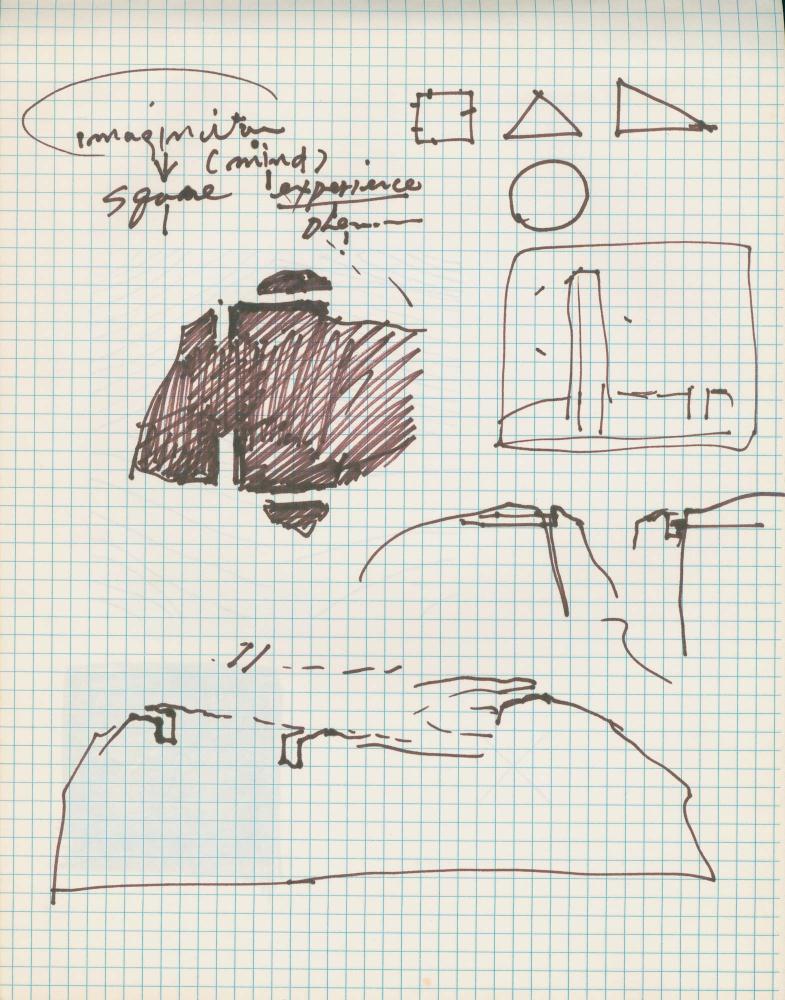 imagination
(mind)
square
experience